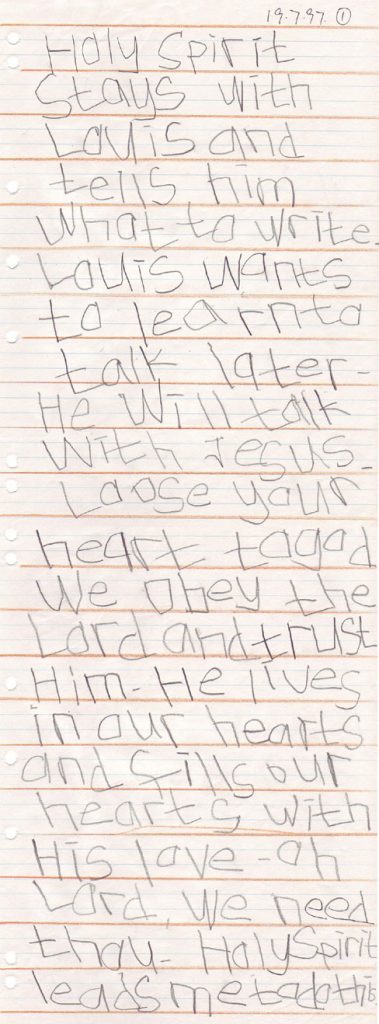 19.7.97. ①
Holy Spirit
Stays with
Louis and
tells him
what to write.
Louis wants
to learn to
talk later-
He will talk
with Jesus.
Loose your
heart to god
We obey the
Lord and trust
Him- He lives
in our hearts
and fills our
hearts with
His love - oh
Lord, we need
thou- Holy Spirit
leads me to do this